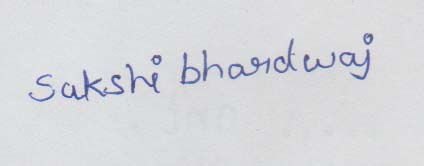 Sakshi bhardwaj